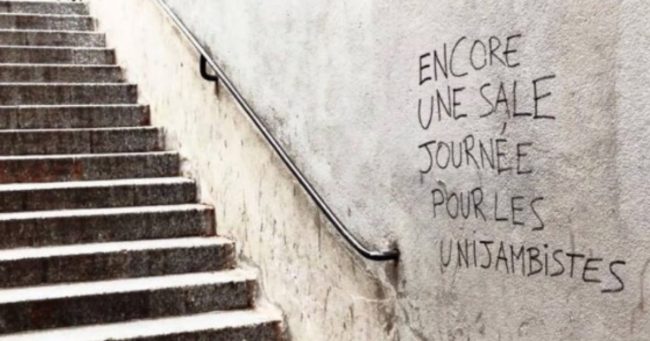 ENCORE
UNE SALE
JOURNÉE
POUR LES
UNIJAMBISTES